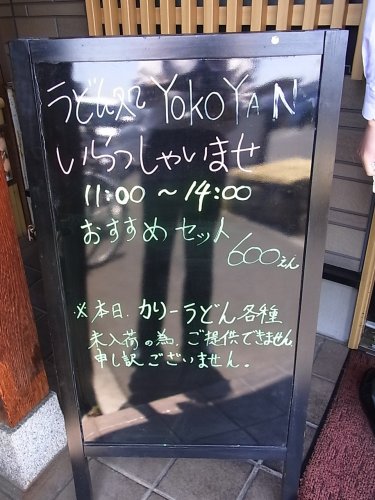 うどん処 YOKOYAN
いらっしゃいませ
11:00 〜 14:00
おすすめセット
600えん
※本日、カリーうどん各種
未入荷の為、ご提供できません。
申し訳ございません。